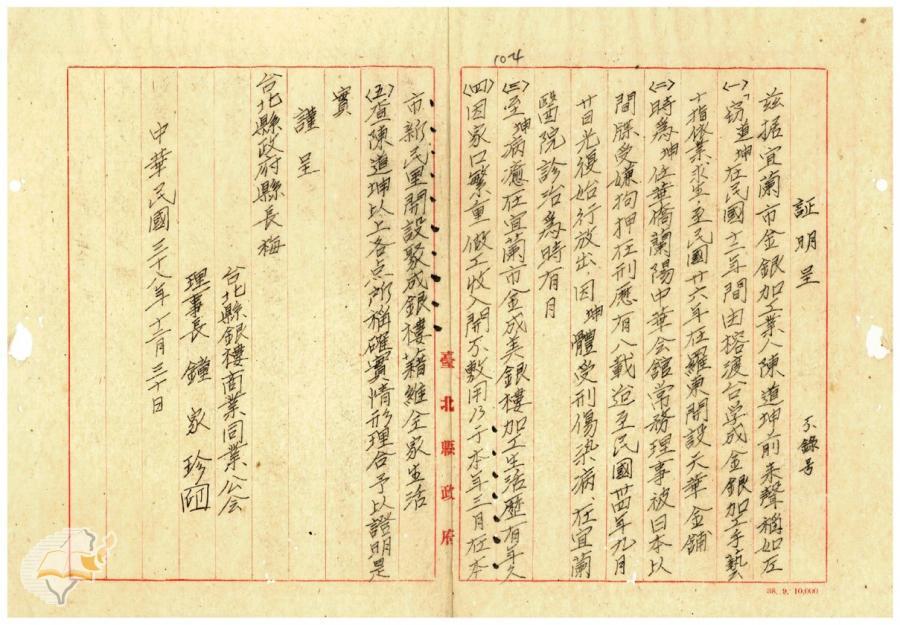 104
証明呈
子錄号
茲据宜蘭市金銀加工業人陳道坤前来聲稱如左
㈠竊道坤在民國十二年間由榕渡台学成金銀加工手藝
十指依業求生至民國廿六年在羅東開設天華金舖
㈡時為坤任華僑蘭陽中華会舘常務理事被日本以
間牒受嫌狗押在刑歷有八載迨至民國卅四年九月
廿日光復始行放出、因坤體受刑傷染病、在宜蘭
醫院診治為時有月
㈢至坤病癒在宜蘭市金成美銀樓加工生活歷有年久
㈣因家口繁重做工收入開不敷用乃于本年三月在本
市新民里開設聚成銀樓藉維全家生活
㈤查陳道坤以上各点所稱確實情形理合予以證明是
實
謹呈
台北縣政府縣長梅
台北縣銀樓商業同業公会
理事長 鐘家珍
中華民國三十八年十二月三十日
臺北縣政府
38. 9. 10,000